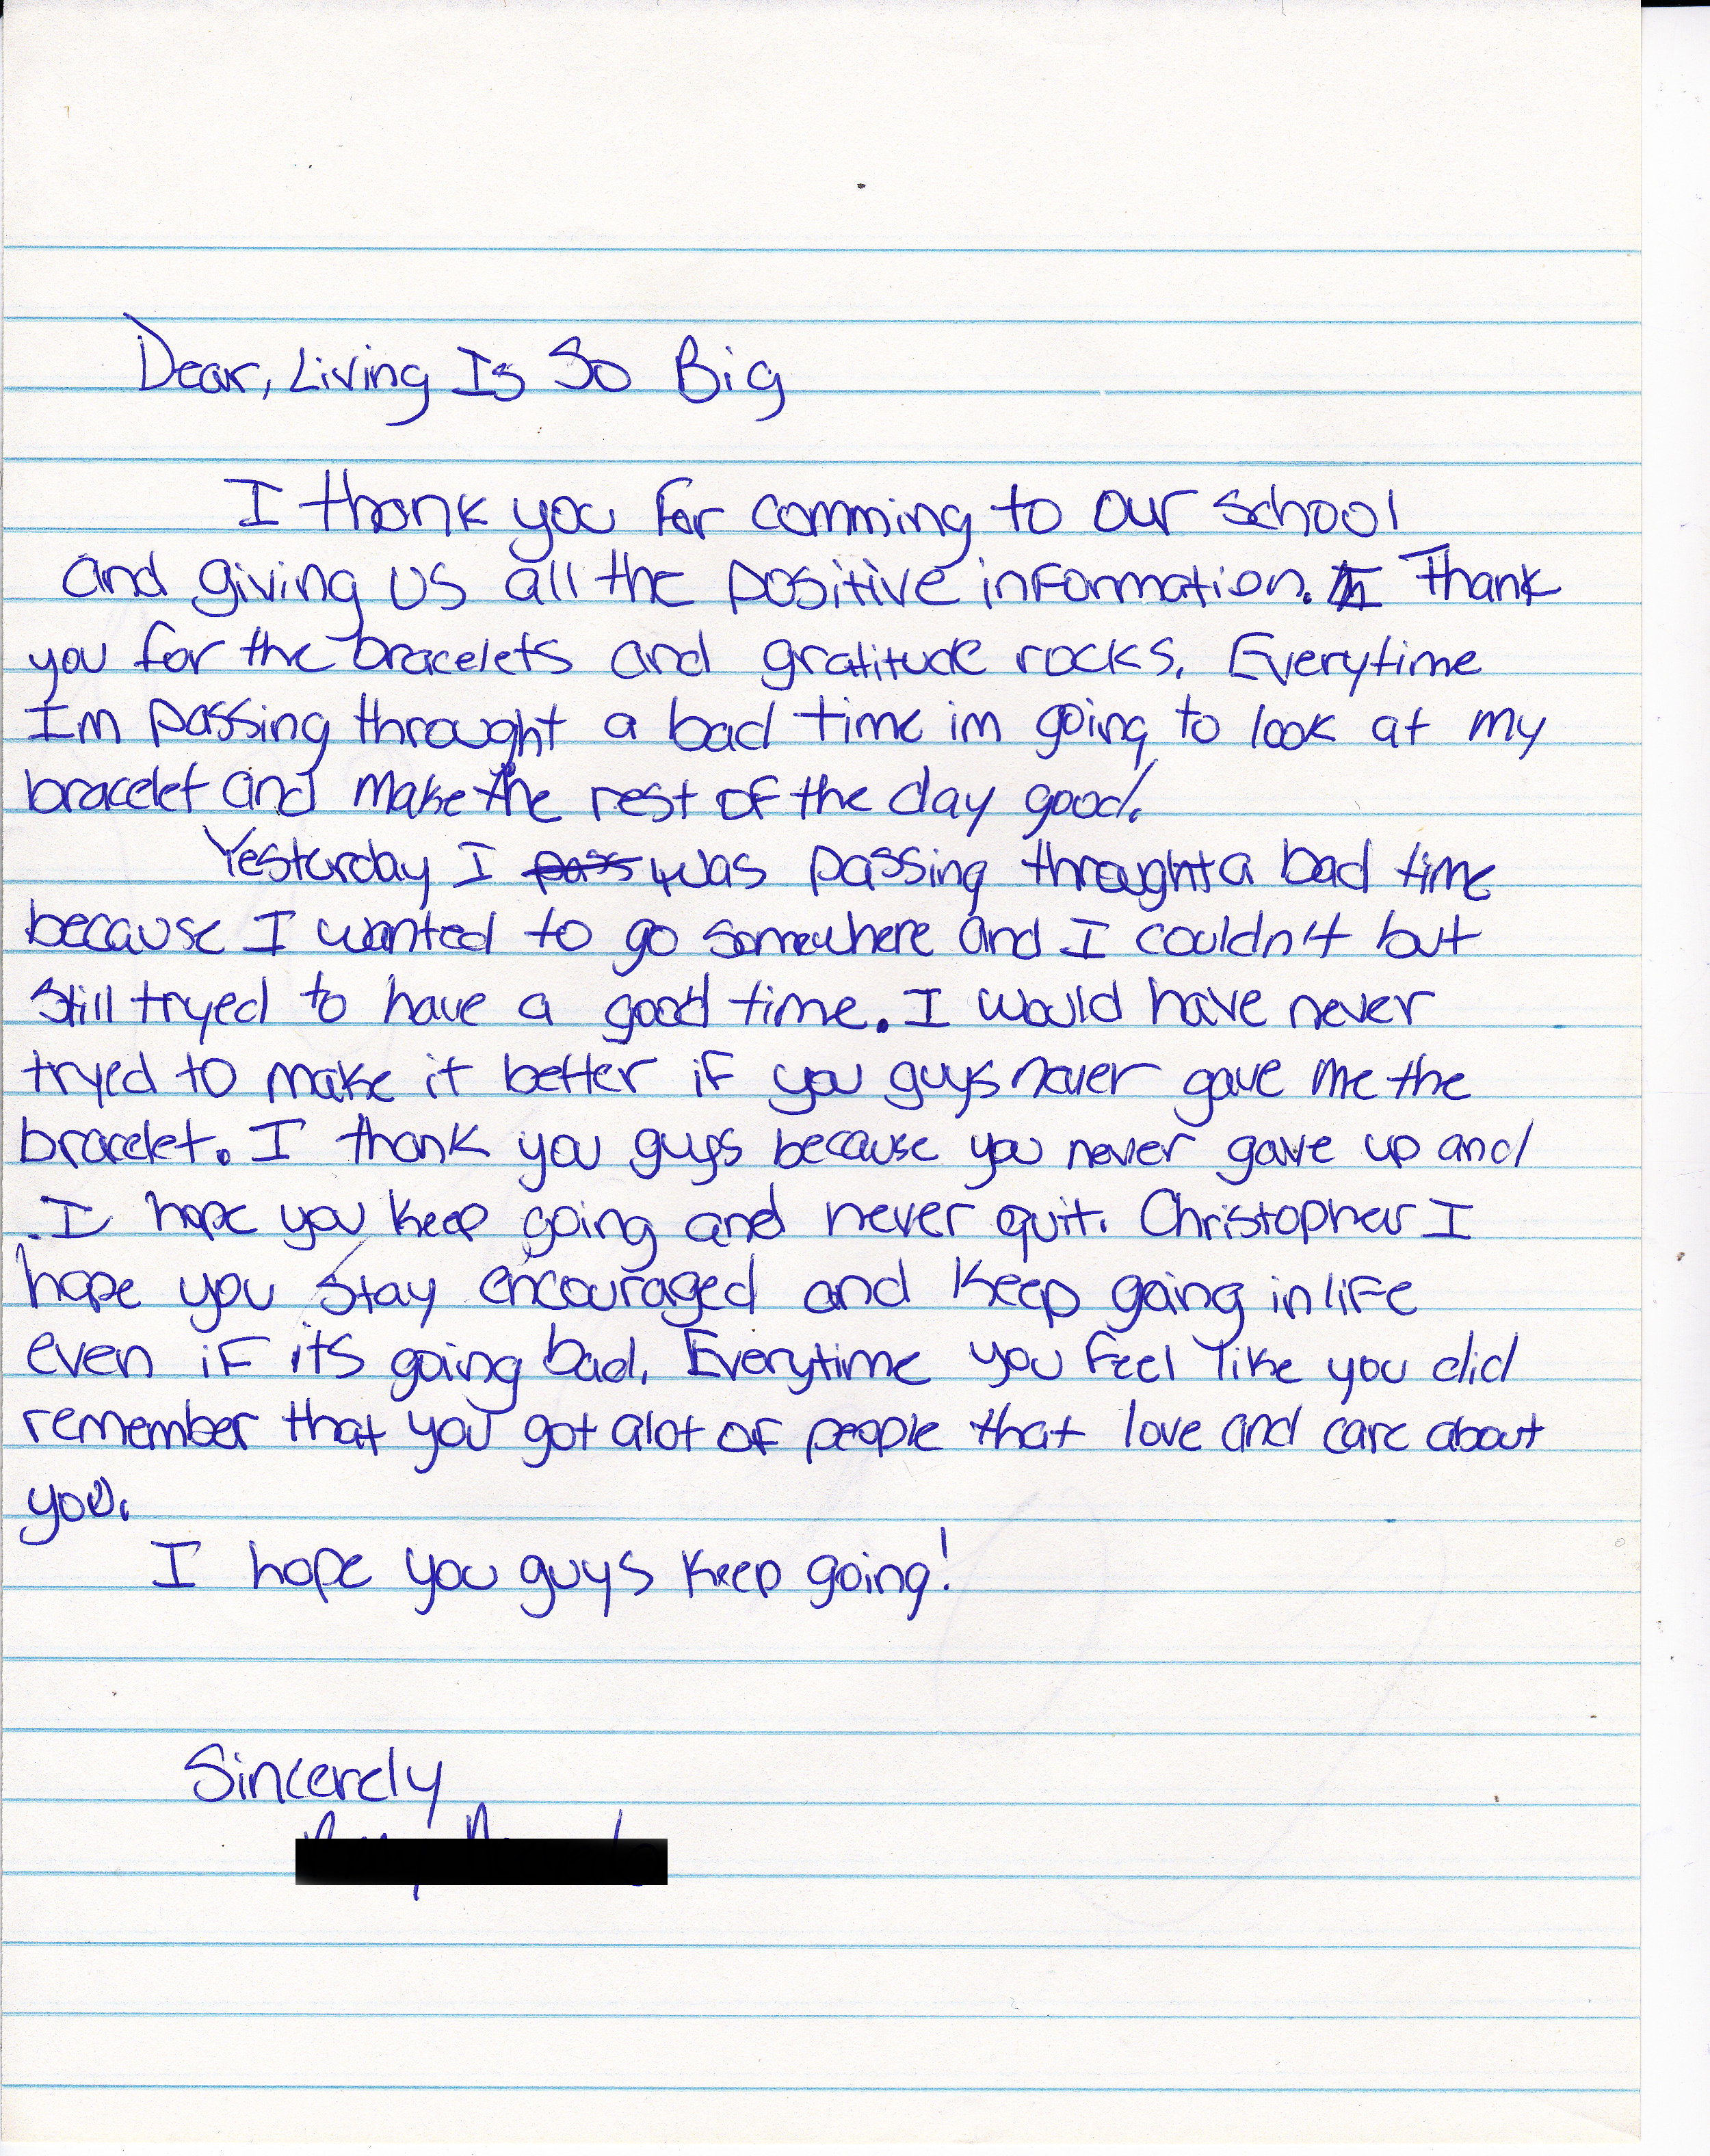 Dear, Living Is So Big
I thank you for comming to our school
and giving us all the positive information. Thank
you for the bracelets and gratitude rocks. Everytime
Im passing throught a bad time im going to look at my
bracelet and make the rest of the day good.
Yesterday I pass was passing throught a bad time
because I wanted to go somewhere and I couldn't but
still tryed to have a good time. I would have never
tryed to make it better if you guys never gave me the
bracelet. I thank you guys because you never gave up and
I hope you keep going and never quit. Christopher I
hope you stay encouraged and keep going in life
even if its going bad. Everytime you feel like you did
remember that you got alot of people that love and care about
you.
I hope you guys keep going!
Sincerely